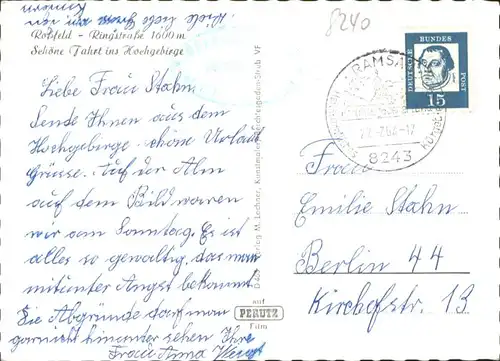 8240
Roßfeld - Ringstraße 1600 m
Schöne Fahrt ins Hochgebirge
Liebe Frau Stahn.
Sende Ihnen aus dem
Hochgebirge schöne Urlaub
Grüsse. Auf der Alm
auf dem Bild waren
wir am Sonntag. Es ist
alles so gewaltig, das man
mitunter Angst bekommt.
Die Abgründe darf man
garnicht hinunter sehen Ihre
Frau Anna
Verlag M. Lochner, Kunstanstalt, Berchtesgaden-Strub VF
auf
PERUTZ
Film
DEUTSCHE
BUNDES
POST
15
RAMSAU
8243
Frau
Emilie Stahn
Berlin 44
Kirchhofstr. 13